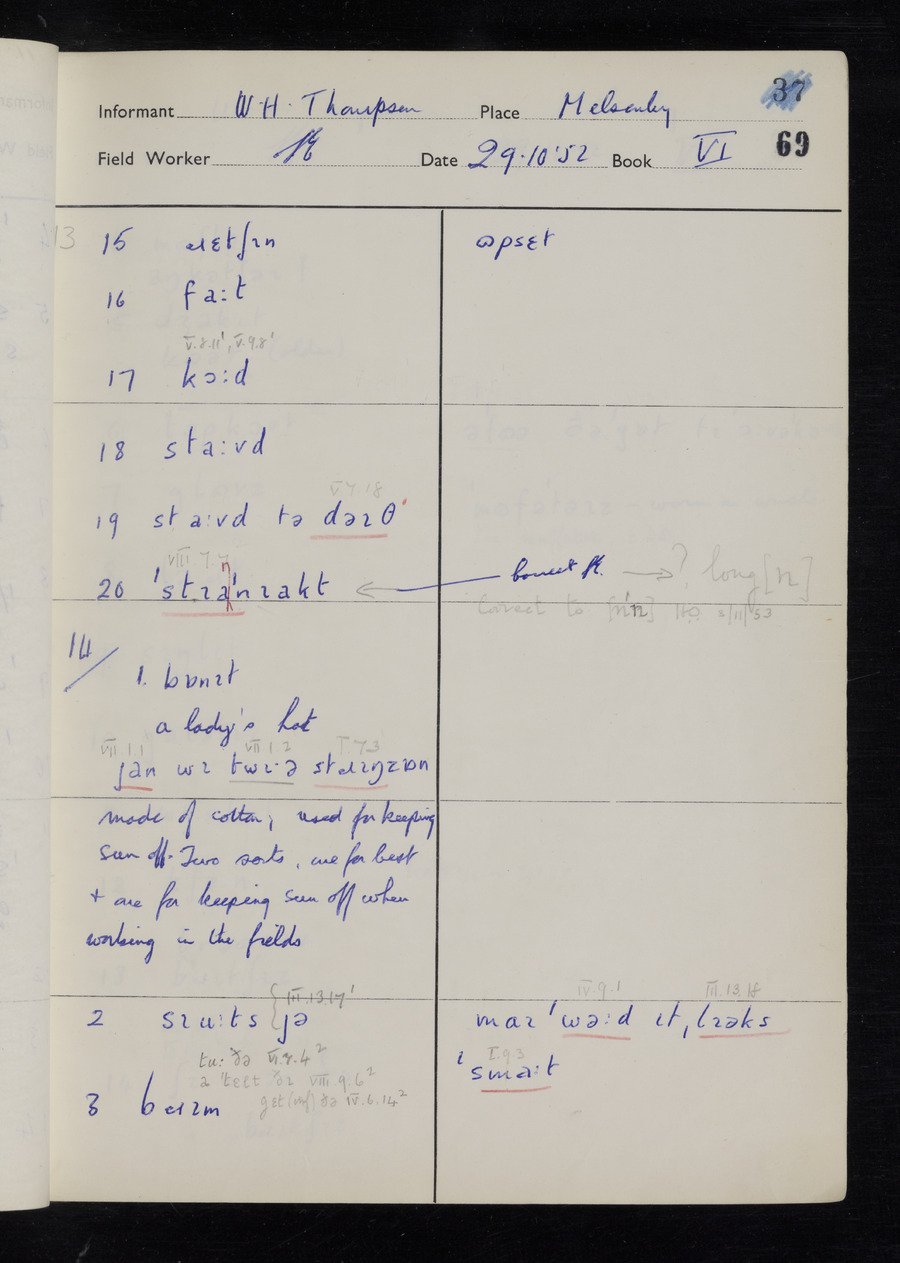 Informant W·H· Thompson Place Melsonby 37
Field Worker Date 29·10·52 Book VI 69
13 15 ɛtʃɪn ɷpsɛt
16 fa:t
V.8.11¹, V.9.8¹
17 kɔ:d
18 sta:vd
V.7.18
19 sta:vd tə dəɪθ
VIII 7.7
20 ˈstɹaŋˈnɪakt ← correct → ? long [n]
Correct to [nˈn] 5/11/53
14/
1. bɒnɪt
a lady's hat
VII.1.1 VII.1.2 I.7.3
jan wɪ
made of cotton; used for keeping
sun off. Two sorts, one for best
+ one for keeping sun off when
working in the fields
III.13.17¹ IV.9.1 III.13.18
2 sɪu:ts jə maɪ ˈwə:d ɪt, lɪəks
tu: ðə VI.8.4² I.9.3
ˈsma:t
VIII.9.6²
3 get (inf) ðə IV.6.14²